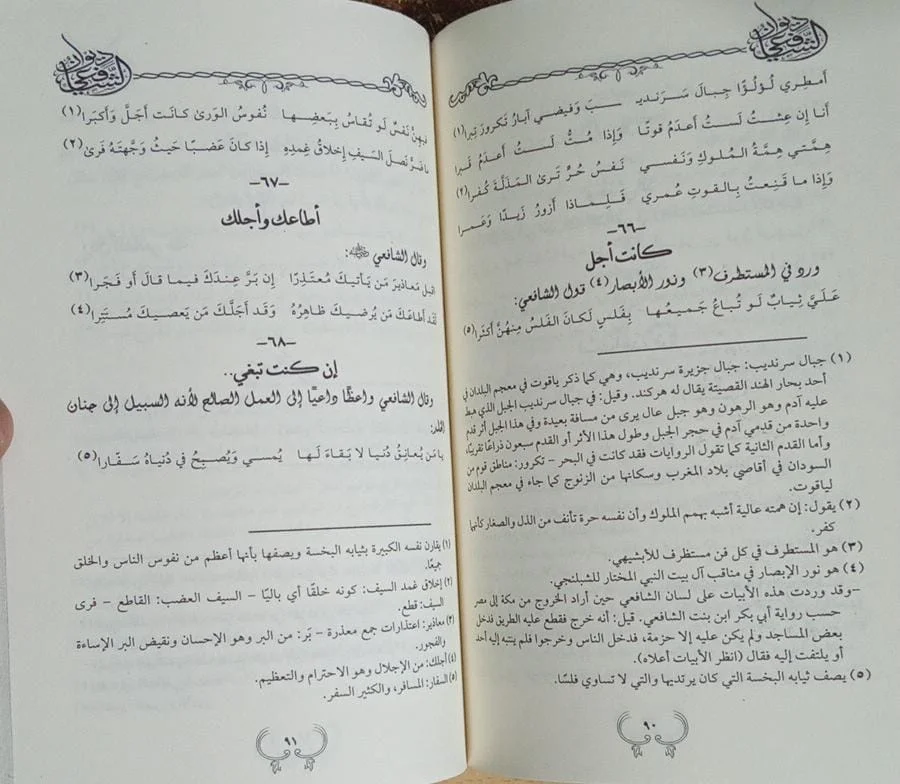 ديوان الشافعي
أَمطِري لُؤلُؤًا جِبالَ سَرَنديـ ـبَ وَفيضي آبارَ تَكرورَ تِبرا(١)
أَنا إِن عِشتُ لَستُ أَعدَمُ قوتًا وَإِذا مُتُّ لَستُ أَعدَمُ قَبرا
هِمَّتي هِمَّةُ المُلوكِ وَنَفسي نَفسُ حُرٍّ تَرى المَذَلَّةَ كُفرا(٢)
وَإِذا ما قَنِعتُ بِالقوتِ عُمري فَلِماذا أَزورُ زَيدًا وَعَمرا
-٦٦-
كانت أجل
ورد في المستطرف(٣) ونور الأبصار(٤) قول الشافعي:
عَلَيَّ ثِيابٌ لَو تُباعُ جَميعُها بِفَلسٍ لَكانَ الفَلسُ مِنهُنَّ أَكثَرا(٥)
(١) جبال سرنديب: جبال جزيرة سرنديب، وهي كما ذكر ياقوت في معجم البلدان في
أحد بحار الهند القصيتة يقال له هركند. وقيل: في جبال سرنديب الجبل الذي هبط
عليه آدم وهو الرهون وهو جبل عال يرى من مسافة بعيدة وفي هذا الجبل أثر قدم
واحدة من قدمي آدم في حجر الجبل وطول هذا الأثر أو القدم سبعون ذراعًا تقريبًا،
وأما القدم الثانية كما تقول الروايات فقد كانت في البحر - تكرور: مناطق قوم من
السودان في أقاصي بلاد المغرب وسكانها من الزنوج كما جاء في معجم البلدان
لياقوت.
(٢) يقول: إن همته عالية أشبه بهمم الملوك وأن نفسه حرة تأنف من الذل والصغار كأنها
كفر.
(٣) هو المستطرف في كل فن مستظرف للأبشيهي.
(٤) هو نور الإبصار في مناقب آل بيت النبي المختار للشبلنجي.
-وقد وردت هذه الأبيات على لسان الشافعي حين أراد الخروج من مكة إلى مصر
حسب رواية أبي بكر ابن بنت الشافعي. قيل: أنه خرج فقطع عليه الطريق فدخل
بعض المساجد ولم يكن عليه إلا حزمة، فدخل الناس وخرجوا فلم ينتبه إليه أحد
أو يلتفت إليه فقال (انظر الأبيات أعلاه).
(٥) يصف ثيابه البخسة التي كان يرتديها والتي لا تساوي فلسًا.
٩٠
ديوان الشافعي
فيهِنَّ نَفسٌ لَو تُقاسُ بِبَعضِها نُفوسُ الوَرى كانَت أَجَلَّ وَأَكبَرا(١)
ما ضَرَّ نَصلَ السَيفِ إِخلاقُ غِمدِهِ إِذا كانَ عَضبًا حَيثُ وَجَّهتَهُ فَرى(٢)
-٦٧-
أطاعك وأجلك
وقال الشافعي:
اقبَل مَعاذيرَ مَن يَأتيكَ مُعتَذِرًا إِن بَرَّ عِندَكَ فيما قالَ أَو فَجَرا(٣)
لَقَد أَطاعَكَ مَن يُرضيكَ ظاهِرُهُ وَقَد أَجَلَّكَ مَن يَعصيكَ مُستَتِرا(٤)
-٦٨-
إن كنت تبغي..
وقال الشافعي واعظًا داعيًا إلى العمل الصالح لأنه السبيل إلى جنان
الخلد:
يا مَن يُعانِقُ دُنيا لا بَقاءَ لَها يُمسي وَيُصبِحُ في دُنياهُ سَفّارا(٥)
(١) يقارن نفسه الكبيرة بثيابه البخسة ويصفها بأنها أعظم من نفوس الناس والخلق
جميعًا.
(٢) إخلاق غمد السيف: كونه خلقًا أي باليًا - السيف العضب: القاطع - فرى
السيف: قطع.
(٣) معاذير: اعتذارات جمع معذرة - بَر: من البر وهو الإحسان ونقيض البر الإساءة
والفجور.
(٤) أجلك: من الإجلال وهو الاحترام والتعظيم.
(٥) السفار: المسافر، والكثير السفر.
٩١